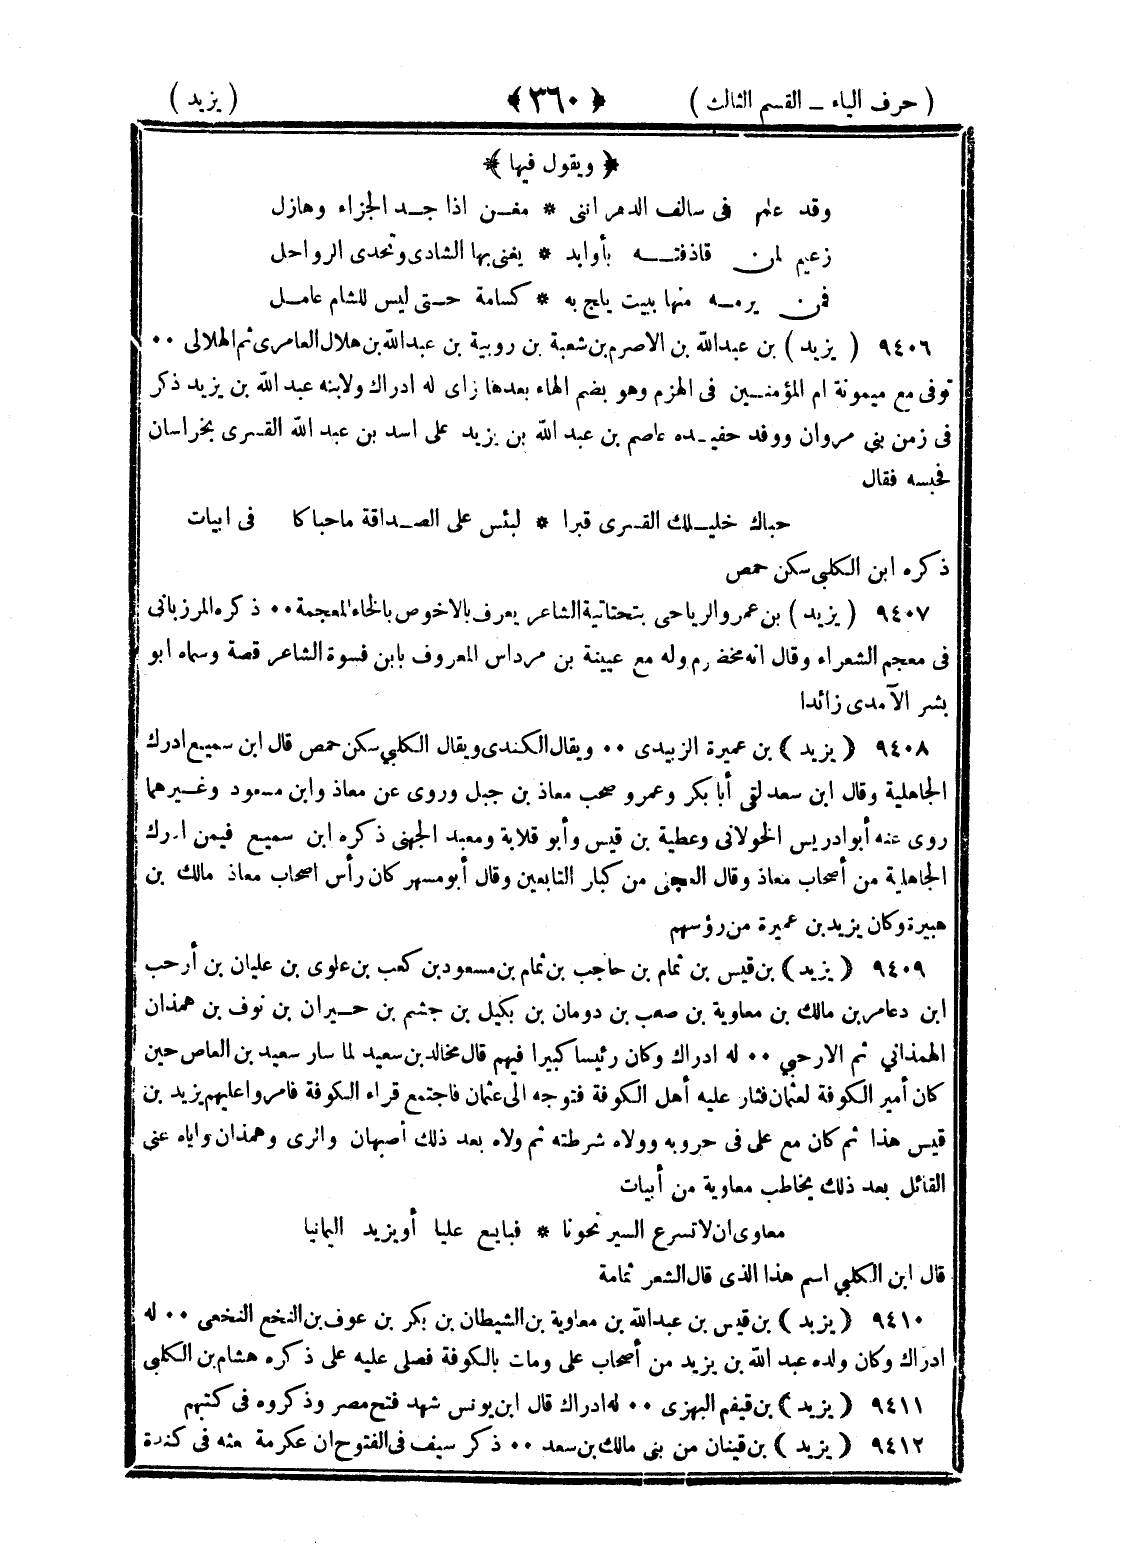 ( حرف الياء ـ القسم الثالث ) ﴿ ٣٦٠ ﴾ ( يزيد )
﴿ ويقول فيها ﴾
وقد علم فى سالف الدهر اننى * مغـن اذا جـد الجزاء وهازل
زعيم لمن قاذفتـه بأوابد * يغنى بها الشادى وتحدى الرواحل
فمن يرمـه منها ببيت يلج به * كسامة حـتى ليس للشام عامـل
٩٤٠٦ ( يزيد ) بن عبدالله بن الاصرم بن شعبة بن روبية بن عبدالله بن هلال العامرى ثم الهلالى ٠٠
توفى مع ميمونة ام المؤمنـين فى الهزم وهو بضم الهاء بعدها زاى له ادراك ولابنه عبد الله بن يزيد ذكر
فى زمن بنى مروان ووفد حفيـده عاصم بن عبد الله بن يزيد على اسد بن عبد الله القسرى بخراسان
فحبسه فقال
حباك خليـلك القسرى قبرا * لبئس على الصـداقة ماحباكا فى ابيات
ذكره ابن الكلبي سكن حمص
٩٤٠٧ ( يزيد ) بن عمرو الرياحى بتحتانية الشاعر يعرف بالاخوص بالخاء المعجمة ٠٠ ذكره المرزبانى
فى معجم الشعراء وقال انه مخضرم وله مع عيينة بن مرداس المعروف بابن فسوة الشاعر قصة وسماه ابو
بشر الآمدى زائدا
٩٤٠٨ ( يزيد ) بن عميرة الزبيدى ٠٠ ويقال الكندى ويقال الكلبي سكن حمص قال ابن سميع ادرك
الجاهلية وقال ابن سعد لقى أبا بكر وعمرو صحب معاذ بن جبل وروى عن معاذ وابن مسعود وغـيرهما
روى عنه أبو ادريس الخولانى وعطية بن قيس وأبو قلابة ومعبد الجهنى ذكره ابن سميع فيمن ادرك
الجاهلية من أصحاب معاذ وقال العجلى من كبار التابعين وقال أبو مسهر كان رأس اصحاب معاذ مالك بن
هبيرة وكان يزيد بن عميرة من رؤسهم
٩٤٠٩ ( يزيد ) بن قيس بن تمام بن حاجب بن تمام بن مسعود بن كعب بن علوى بن عليان بن أرحب
ابن دعامر بن مالك بن معاوية بن صعب بن دومان بن بكيل بن جشم بن حـيران بن نوف بن همذان
الهمذاني ثم الارحبي ٠٠ له ادراك وكان رئيسا كبيرا فيهم قال مخالد بن سعيد لما سار سعيد بن العاص حين
كان أمير الكوفة لعثمان فثار عليه أهل الكوفة فتوجه الى عثمان فاجتمع قراء الكوفة فامروا عليهم يزيد بن
قيس هذا ثم كان مع على فى حروبه وولاه شرطته ثم ولاه بعد ذلك أصبهان والرى وهمذان واياه عنى
القائل بعد ذلك يخاطب معاوية من أبيات
معاوى ان لا تسرع السير نحونا * فبايع عليا أو يزيد اليمانيا
قال ابن الكلبي اسم هذا الذى قال الشعر ثمامة
٩٤١٠ ( يزيد ) بن قيس بن عبدالله بن معاوية بن الشيطان بن بكر بن عوف بن النخع النخعى ٠٠ له
ادراك وكان ولده عبد الله بن يزيد من أصحاب على ومات بالكوفة فصلى عليه على ذكره هشام بن الكلبي
٩٤١١ ( يزيد ) بن قيفم البهزى ٠٠ له ادراك قال ابن يونس شهد فتح مصر وذكروه فى كتبهم
٩٤١٢ ( يزيد ) بن قينان من بنى مالك بن سعد ٠٠ ذكر سيف فى الفتوح ان عكرمة بعثه فى كندة